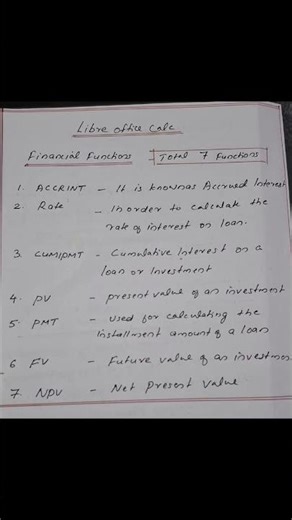 Libre office Calc
Financial Functions Total 7 Functions
1. ACCRINT - It is known as Accrued Interest
2. Rate - In order to calculate the
rate of interest on loan.
3. CUMIPMT - Cumulative Interest on a
loan or Investment
4. PV - present value of an investment
5. PMT - used for calculating the
Installment amount of a loan
6 FV - Future value of an investmen
7. NPV - Net Present Value